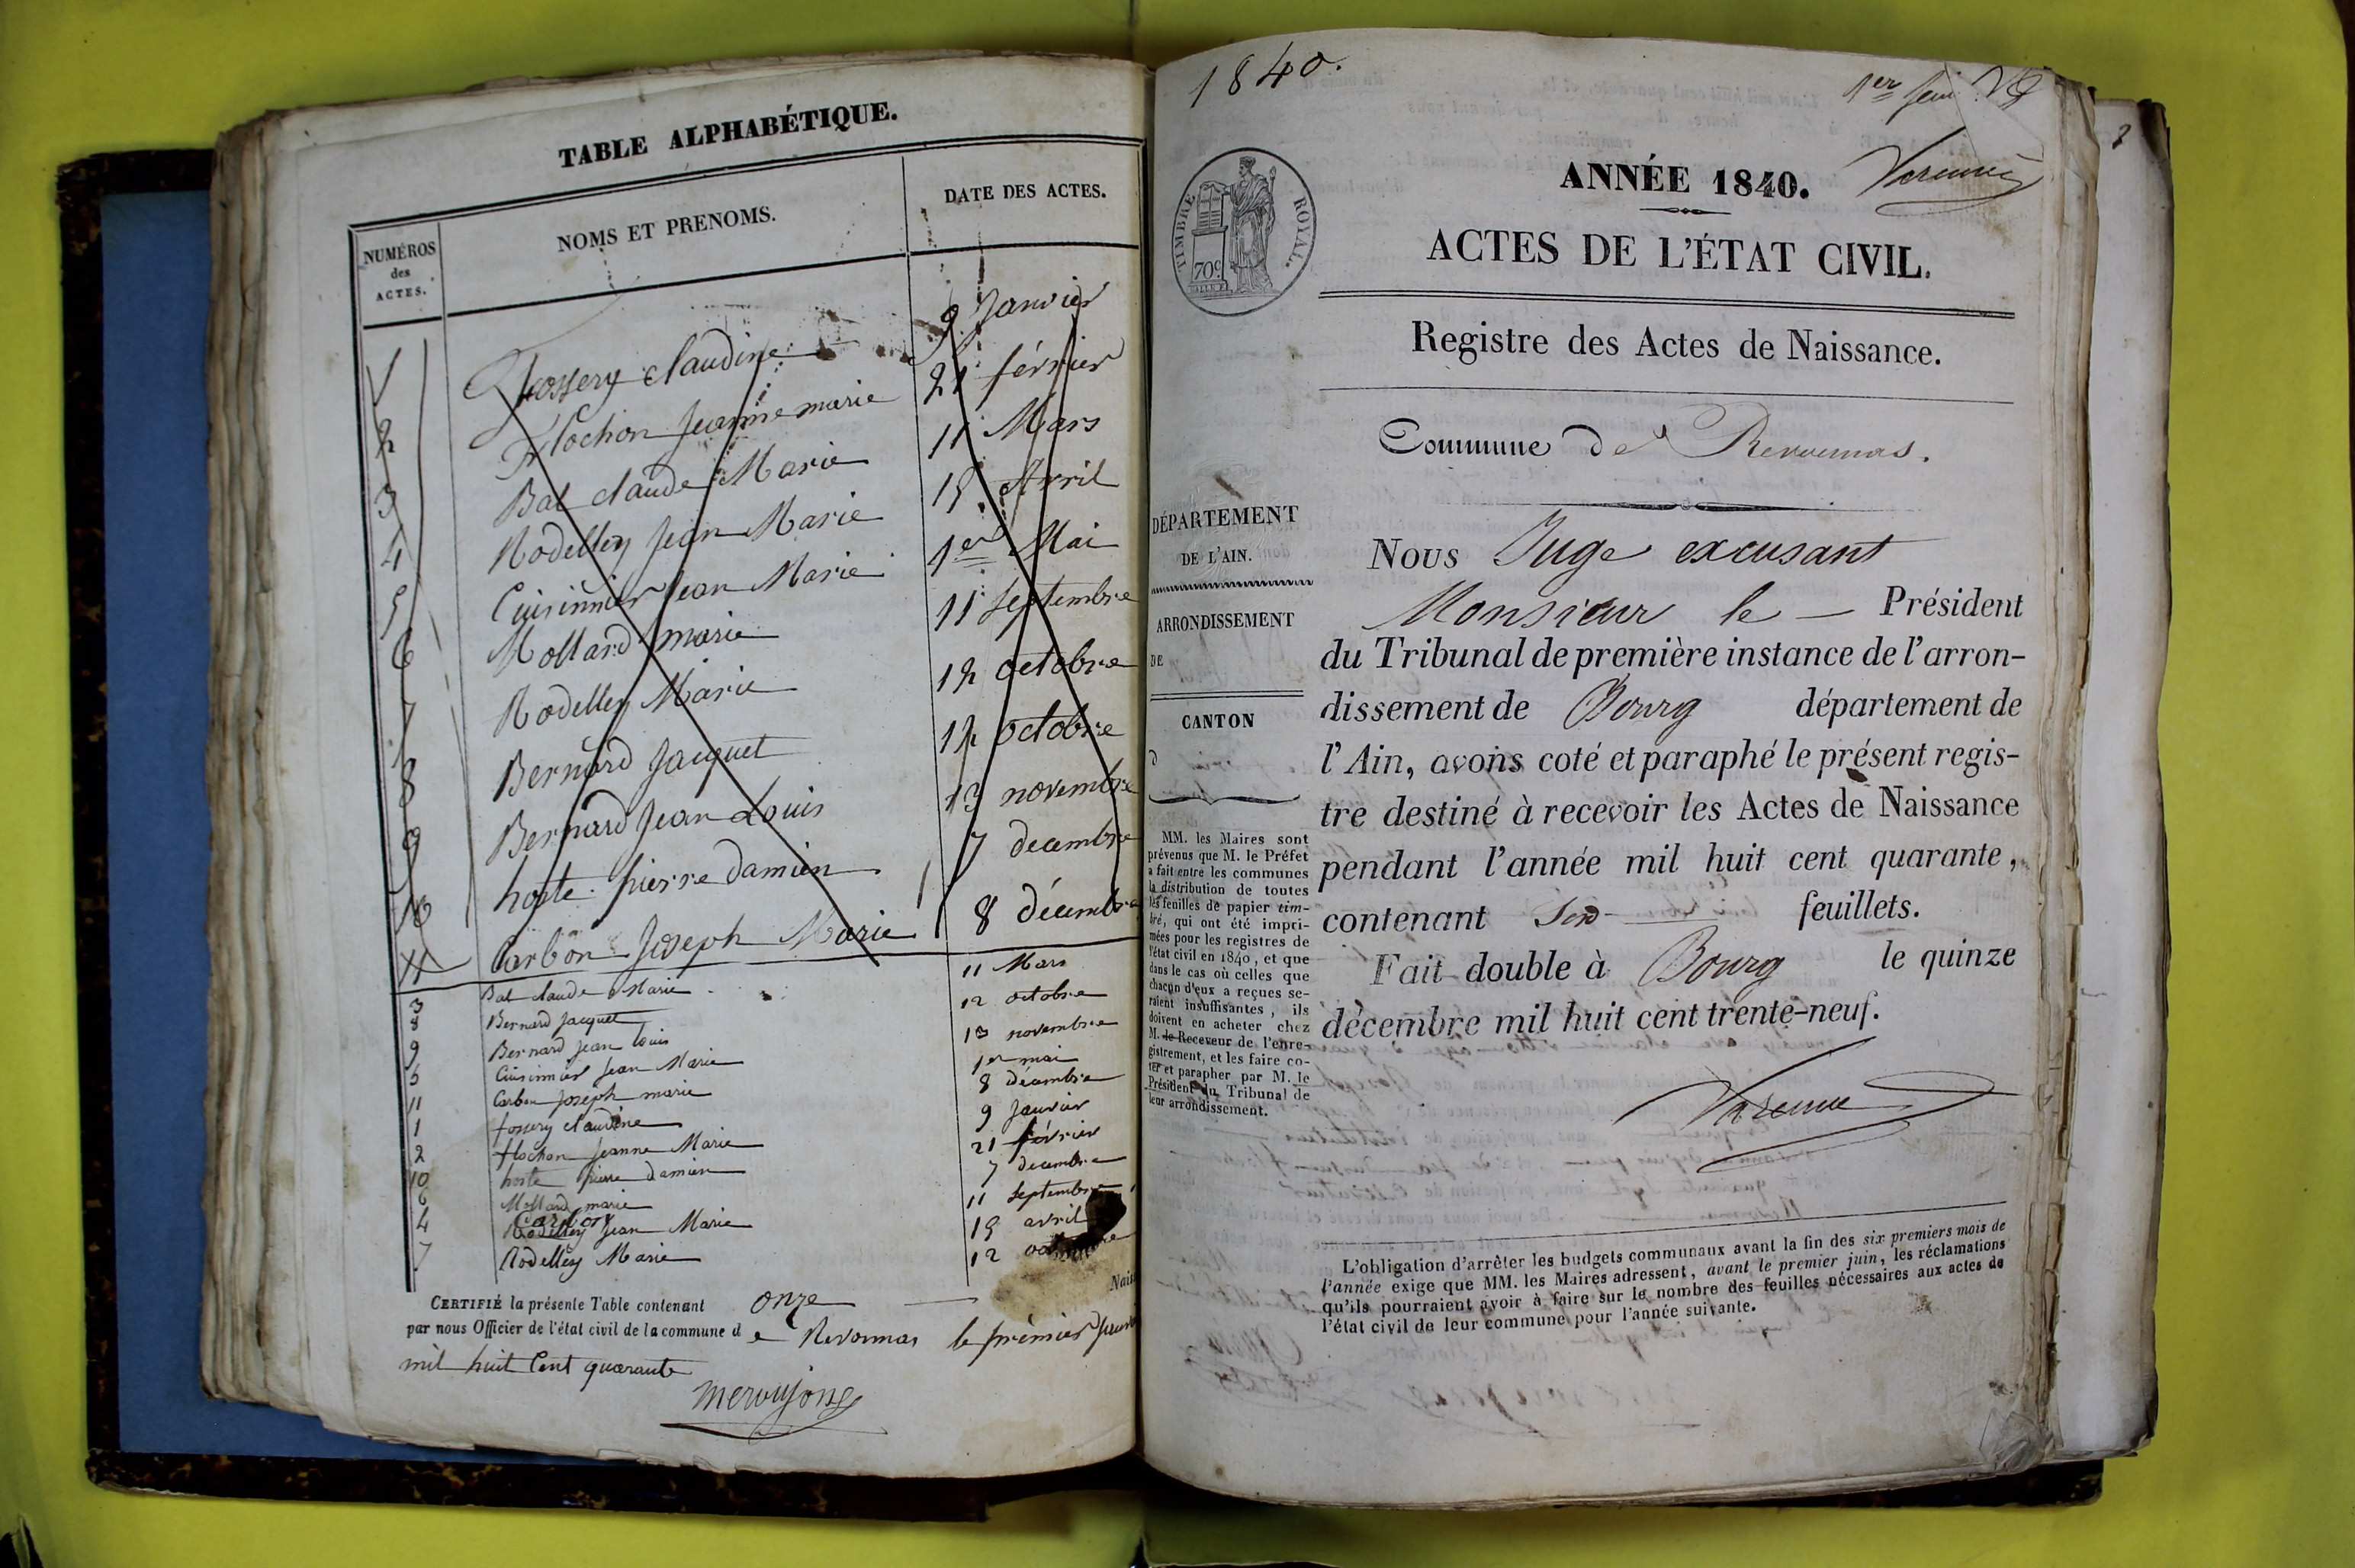 TABLE ALPHABÉTIQUE.
NUMÉROS
des
ACTES.
NOMS ET PRENOMS.
DATE DES ACTES.
1 fossery claudine 9 Janvier
2 flochon Jeanne marie 21 février
3 Bal claude Marie 11 Mars
4 Rodelley Jean Marie 19 Avril
5 Cuisinnier Jean Marie 1er Mai
6 Mollard marie 11 septembre
7 Rodelley Marie 12 octobre
8 Bernard Jacquet 12 octobre
9 Bernard Jean Louis 13 novembre
10 hoste pierre damien 7 decembre
11 Carbon Joseph Marie 8 décembre
3 Bal claude Marie 11 Mars
8 Bernard Jacquet 12 octobre
9 Bernard Jean Louis 13 novembre
5 Cuisinnier Jean Marie 1er mai
11 Carbon Joseph marie 8 décembre
1 fossery claudine 9 Janvier
2 flochon Jeanne Marie 21 février
10 hoste pierre damien 7 decembre
6 Mollard marie 11 septembre
Carbon
4 Rodelley Jean Marie 19 avril
7 Rodelley Marie 12
CERTIFIÉ la présente Table contenant onze
par nous Officier de l'état civil de la commune de Revonnas le premier
mil huit Cent quarante
1840.
1er
Varenne
TIMBRE ROYAL.
70c.
ANNÉE 1840.
ACTES DE L'ÉTAT CIVIL.
Registre des Actes de Naissance.
Commune de Revonnas.
DÉPARTEMENT
DE L'AIN.
ARRONDISSEMENT
DE
CANTON
d
MM. les Maires sont
prévenus que M. le Préfet
a fait entre les communes
la distribution de toutes
les feuilles de papier tim-
bré, qui ont été impri-
mées pour les registres de
l'état civil en 1840, et que
dans le cas où celles que
chacun d'eux a reçues se-
raient insuffisantes, ils
doivent en acheter chez
M. le Receveur de l'enre-
gistrement, et les faire co-
ter et parapher par M. le
Président du Tribunal de
leur arrondissement.
Nous Juge excusant
Monsieur le Président
du Tribunal de première instance de l'arron-
dissement de Bourg département de
l'Ain, avons coté et paraphé le présent regis-
tre destiné à recevoir les Actes de Naissance
pendant l'année mil huit cent quarante,
contenant feuillets.
Fait double à Bourg le quinze
décembre mil huit cent trente-neuf.
Varenne
L'obligation d'arrêter les budgets communaux avant la fin des six premiers mois de
l'année exige que MM. les Maires adressent, avant le premier juin, les réclamations
qu'ils pourraient avoir à faire sur le nombre des feuilles nécessaires aux actes de
l'état civil de leur commune pour l'année suivante.